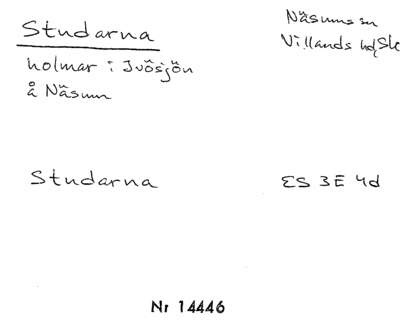 Studarna
Näsums sn
Villands hd, Sk
holmar i Ivösjön
å Näsum
Studarna
ES 3E 4d
Nr 14446